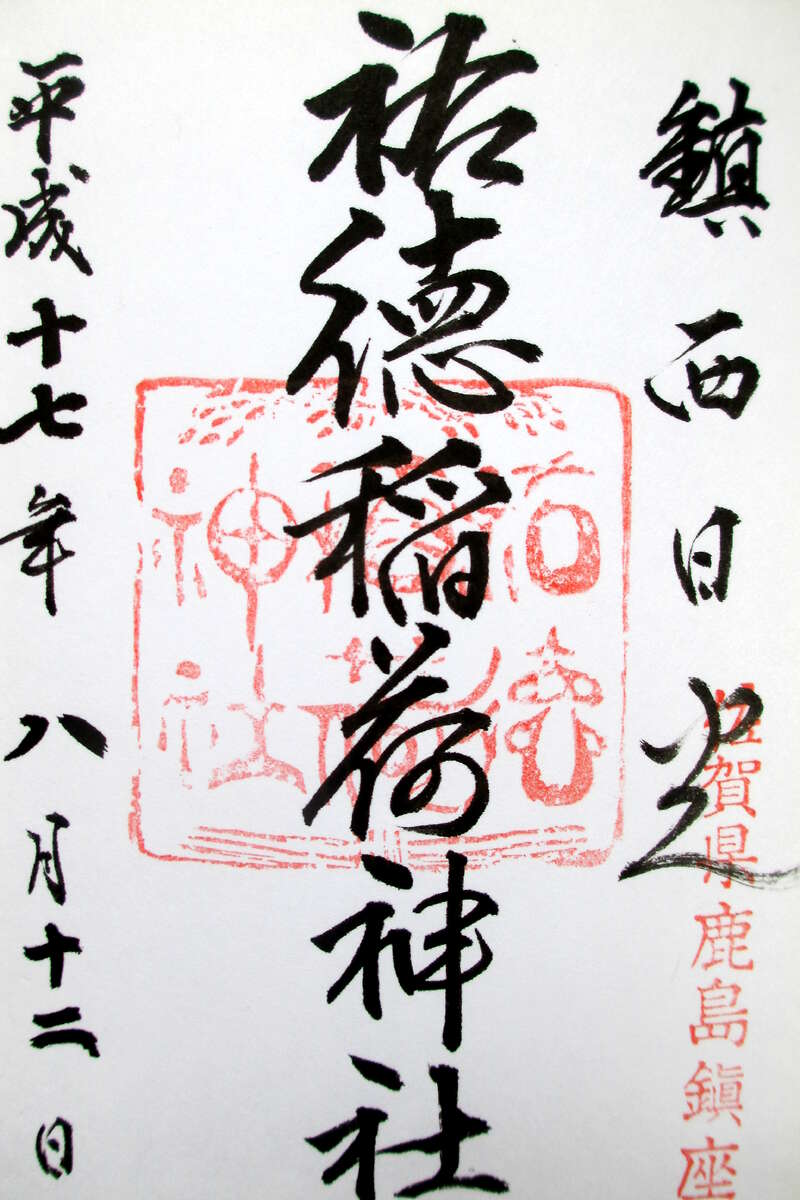 鎮西日光
佐賀県鹿島鎮座
祐徳稲荷神社
祐徳
稲荷
神社
平成十七年八月十二日